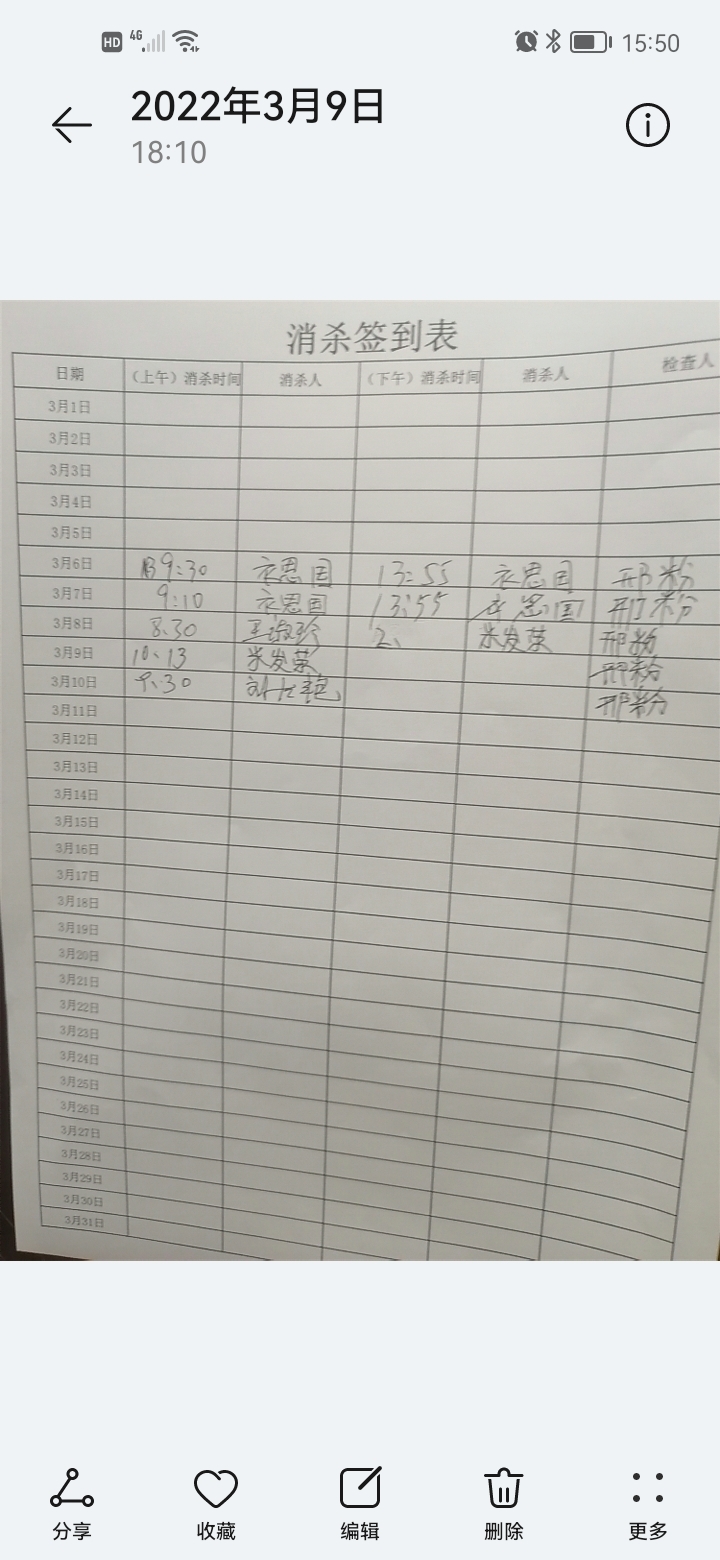 HD 4G 15:50
2022年3月9日
18:10
消杀签到表
日期 （上午）消杀时间 消杀人 （下午）消杀时间 消杀人 检查人
3月1日
3月2日
3月3日
3月4日
3月5日
3月6日 9:30 衣思国 13:55 衣思国 邢粉
3月7日 9:10 衣思国 13:55 衣思国 邢粉
3月8日 8:30 王淑珍 2、 米发荣 邢粉
3月9日 10、13 米发荣 邢粉
3月10日 9:30 邢粉
3月11日
3月12日
3月13日
3月14日
3月15日
3月16日
3月17日
3月18日
3月19日
3月20日
3月21日
3月22日
3月23日
3月24日
3月25日
3月26日
3月27日
3月28日
3月29日
3月30日
3月31日
分享 收藏 编辑 删除 更多